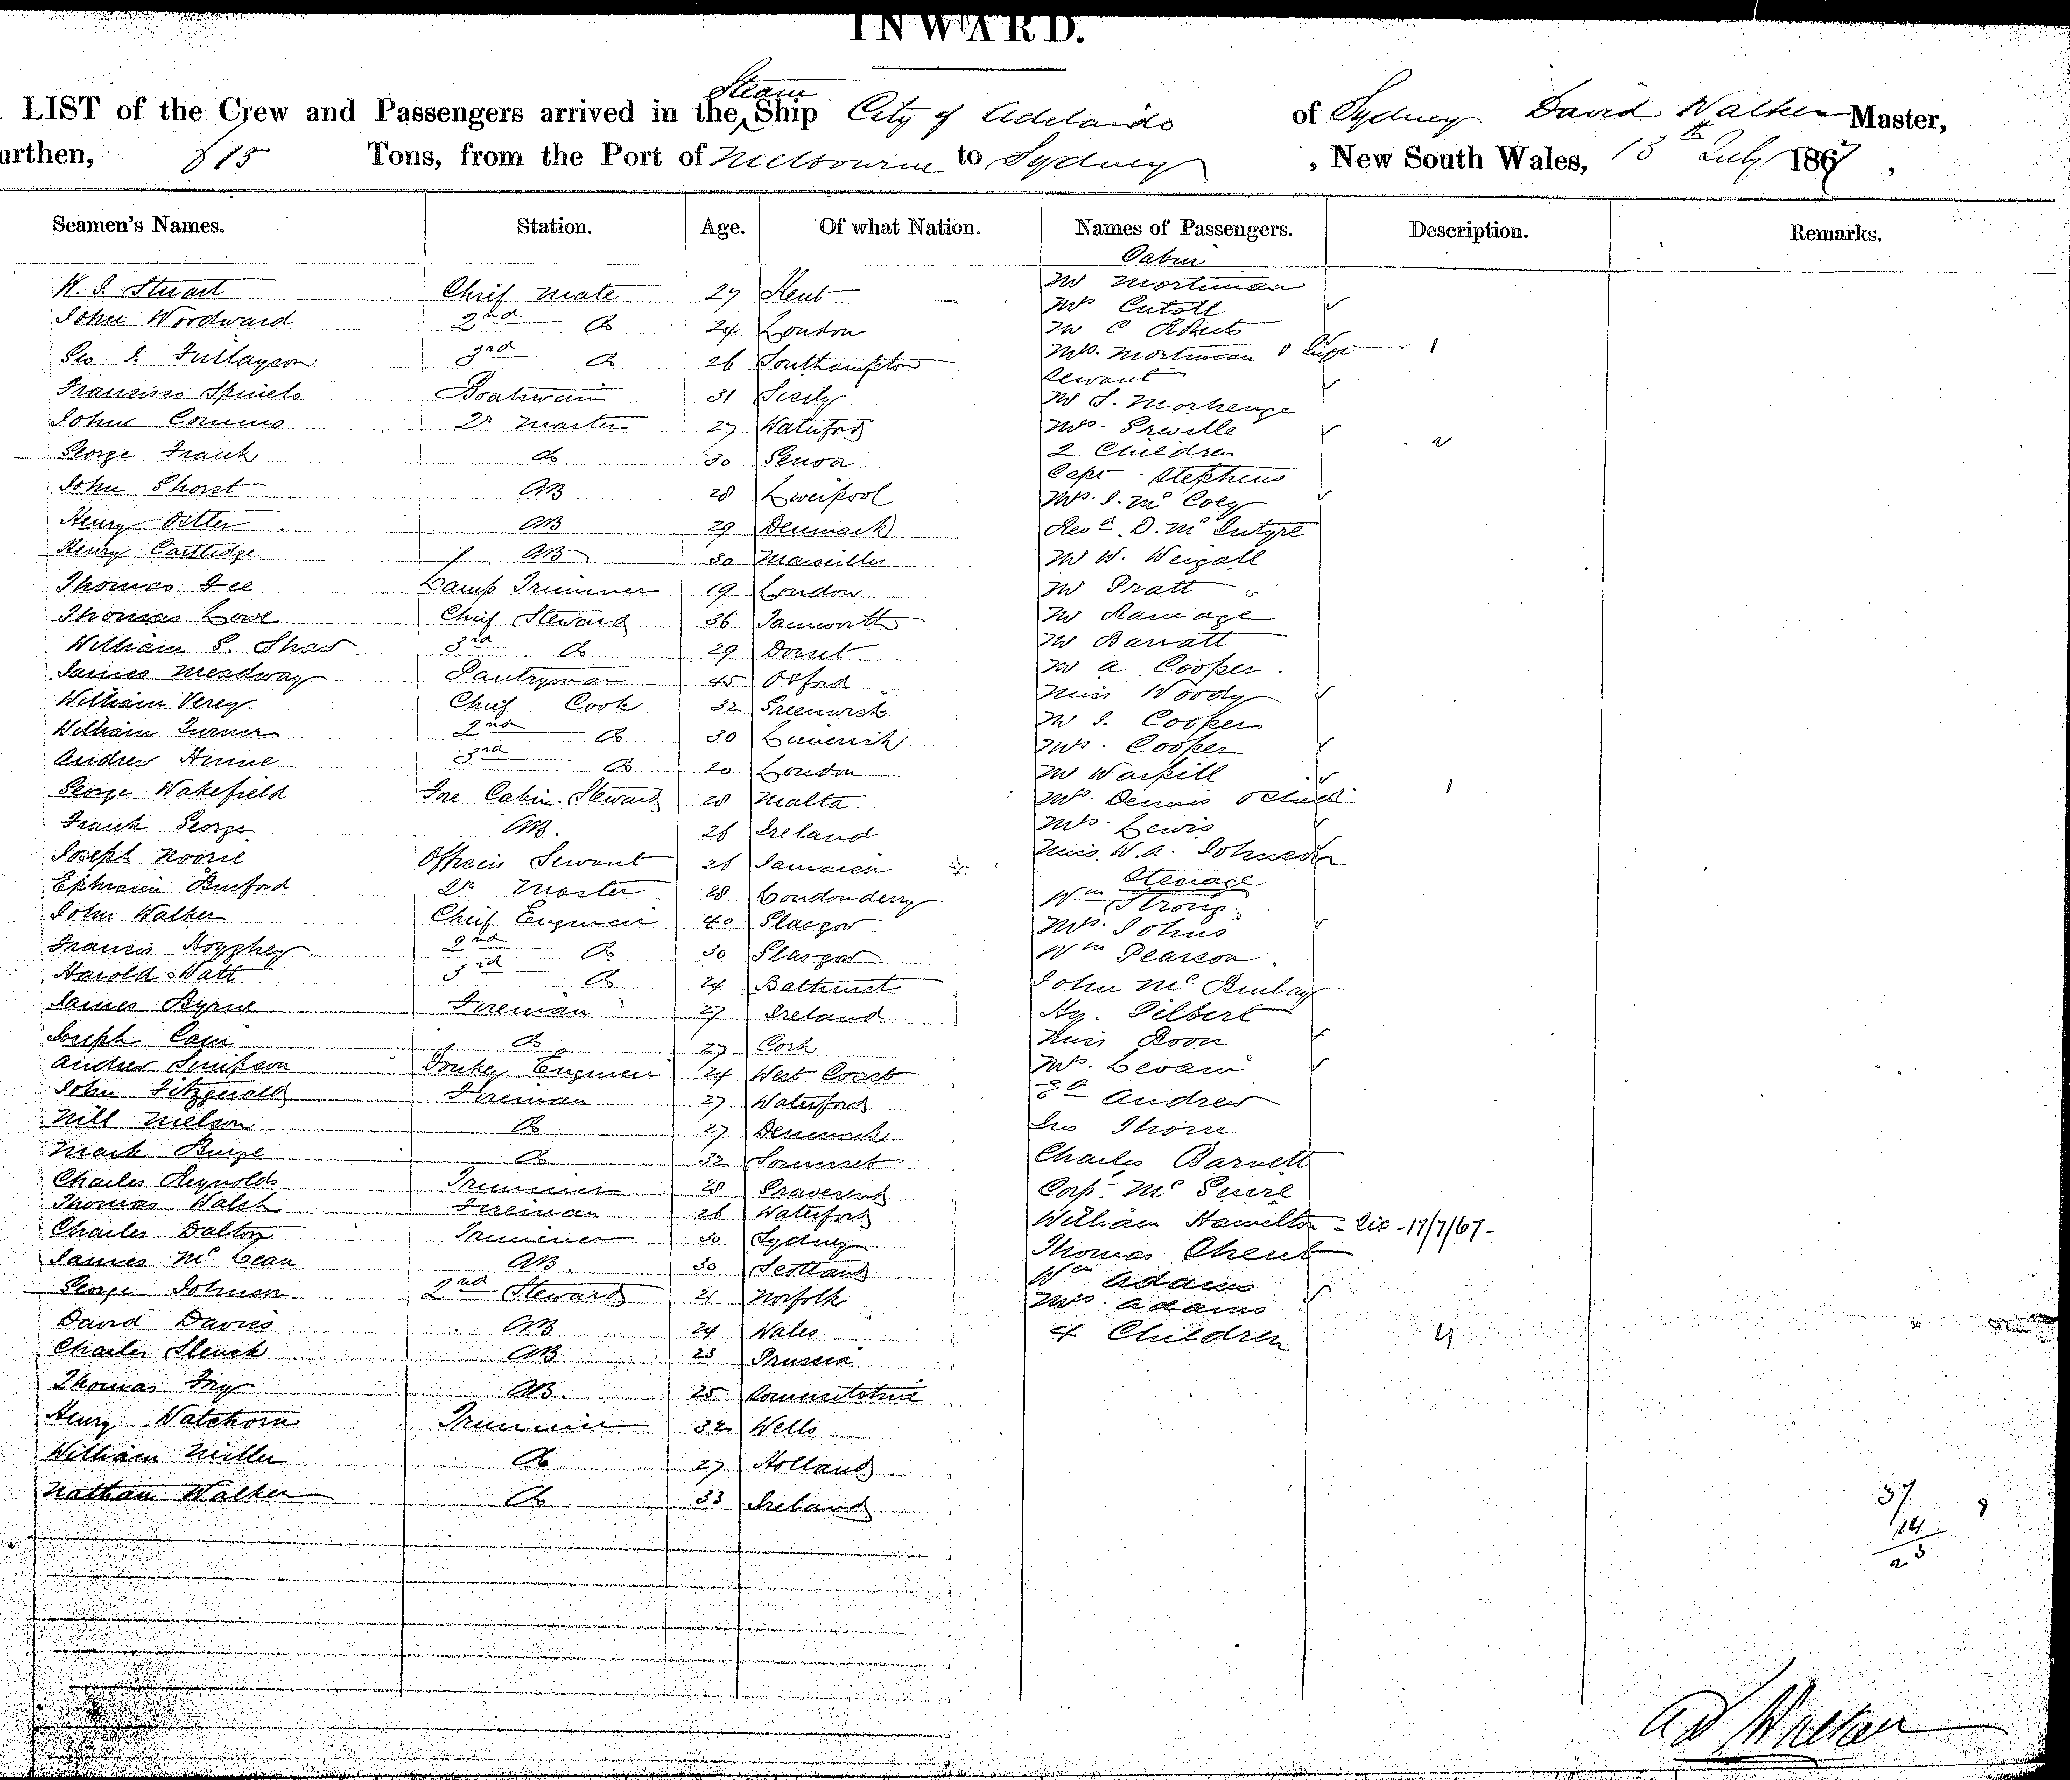 INWARD.
Steam
LIST of the Crew and Passengers arrived in the Ship City of Adelaide of Sydney David Walker Master,
urthen, 815 Tons, from the Port of Melbourne to Sydney , New South Wales, 15th July 1867,
Seamen's Names. Station. Age. Of what Nation. Names of Passengers. Description. Remarks.
Cabin
W. J. Stuart Chief Mate 27 Kent Mr Mortimer
John Woodward 2nd Do 24 London Mrs Cutoll
Geo J. Finlayson 3rd Do 26 Southampton Mr C Roberts
Mrs. Mortimer & Infr 1
Servant
Francisco Spinets Boatswain 31 Sicily Mr S.
John Comms Qr Master 27 Waterford Mrs.
George Frank Do 30 Genoa 2 Children 2
Capt Stephens
John Short AB 28 Liverpool Mrs. J. Mc Coly
Henry Ditter AB 29 Denmark Revd. D. Mc Intyre
Henry Cartledge AB 30 Marseilles Mr W. Weigall
Thomas Lee Lamp Trimmer 19 London Mr Pratt
Thomas Lowe Chief Steward 36 Tamworth Mr Ramage
William G. Shaw 3rd Do 29 Dorset Mr Barratt
James Meadway Pantryman 45 Oxford Mr A Cooper
William Verey Chief Cook 32 Greenwich Miss Woody
William Turner 2nd Do 30 Limerick Mr J. Cooper
Mrs. Cooper
Andrew Hume 3rd Do 20 London Mr Warkill
George Wakefield Fore Cabin Steward 28 Malta Mrs. Dennis & Child 1
Frank George AB. 26 Ireland Mrs. Lewis
Joseph Moore Officers Servant 21 Jamaica Miss W. A. Johnson
Steerage
Ephraim Burford Qr Master 28 Londonderry Wm Strong
John Walker Chief Engineer 40 Glasgow Mrs. Johns
Francis 2nd Do 30 Glasgow Wm Pearson
Harold Watt 3rd Do 24 Bathurst John Mc Kinlay
James Byrne Fireman 27 Ireland Hy. Gilbert
Joseph Cain Do 27 Cork Miss Roon
Andrew Simpson Donkey Engineer 24 West Coast Mrs. Levain
John Fitzgerald Fireman 27 Waterford Andrew
Nill Nielson Do 27 Denmark Geo Thorn
Mark Burge Do 32 Somerset Charles Barnett
Charles Reynolds Trimmer 28 Gravesend Corpl Mc Guire
Thomas Walsh Fireman 26 Waterford William Hamilton - 17/7/67 -
Charles Dalton Trimmer 30 Sydney Thomas Cheut
James Mc Lean AB. 30 Scotland Wm Adams
George Johnson 2nd Steward 21 Norfolk Mrs. Adams
David Davies AB 24 Wales 4 Children 4
Charles Slewit AB 23 Prussia
Thomas Ing AB. 25
Henry Watchorn Trimmer 32 Wells
William Miller Do 27 Holland
Nathan Walker Do 33 Ireland
37 9
14
23
A D Walker